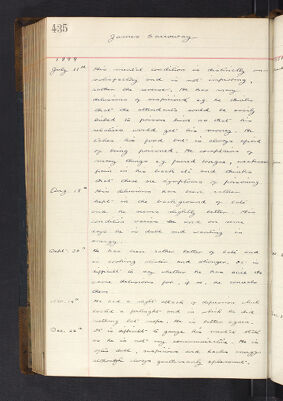 435
James
1899
July 11th His mental condition is distinctly un-
satisfactory and is not improving,
rather the reverse. He has many
delusions of suspicion e.g. he thinks
that the attendants would be easily
bribed to poison him so that his
relatives would get his money. He
takes his food but is always afraid
of being poisoned. He complains of
many things e.g. furred tongue, weakness
from in his back etc and thinks
that these are symptoms of poisoning
Aug. 18th His delusions have been rather
kept in the background of late
and he seems slightly better. His
condition varies and on some
days he is dull and wanting in
energy.
Sept. 20th He has been rather better of late and
is looking stouter and stronger. It is
difficult to say whether he has still the
same delusions for, if so, he conceals
them
Nov. 14th He had a slight attack of depression which
lasted a fortnight and in which he did
nothing but mope. He is better again.
Dec. 22nd It is difficult to gauge his mental state
as he is not very communicative. He is
often dull, suspicious and lacks energy
although always gentlemanly